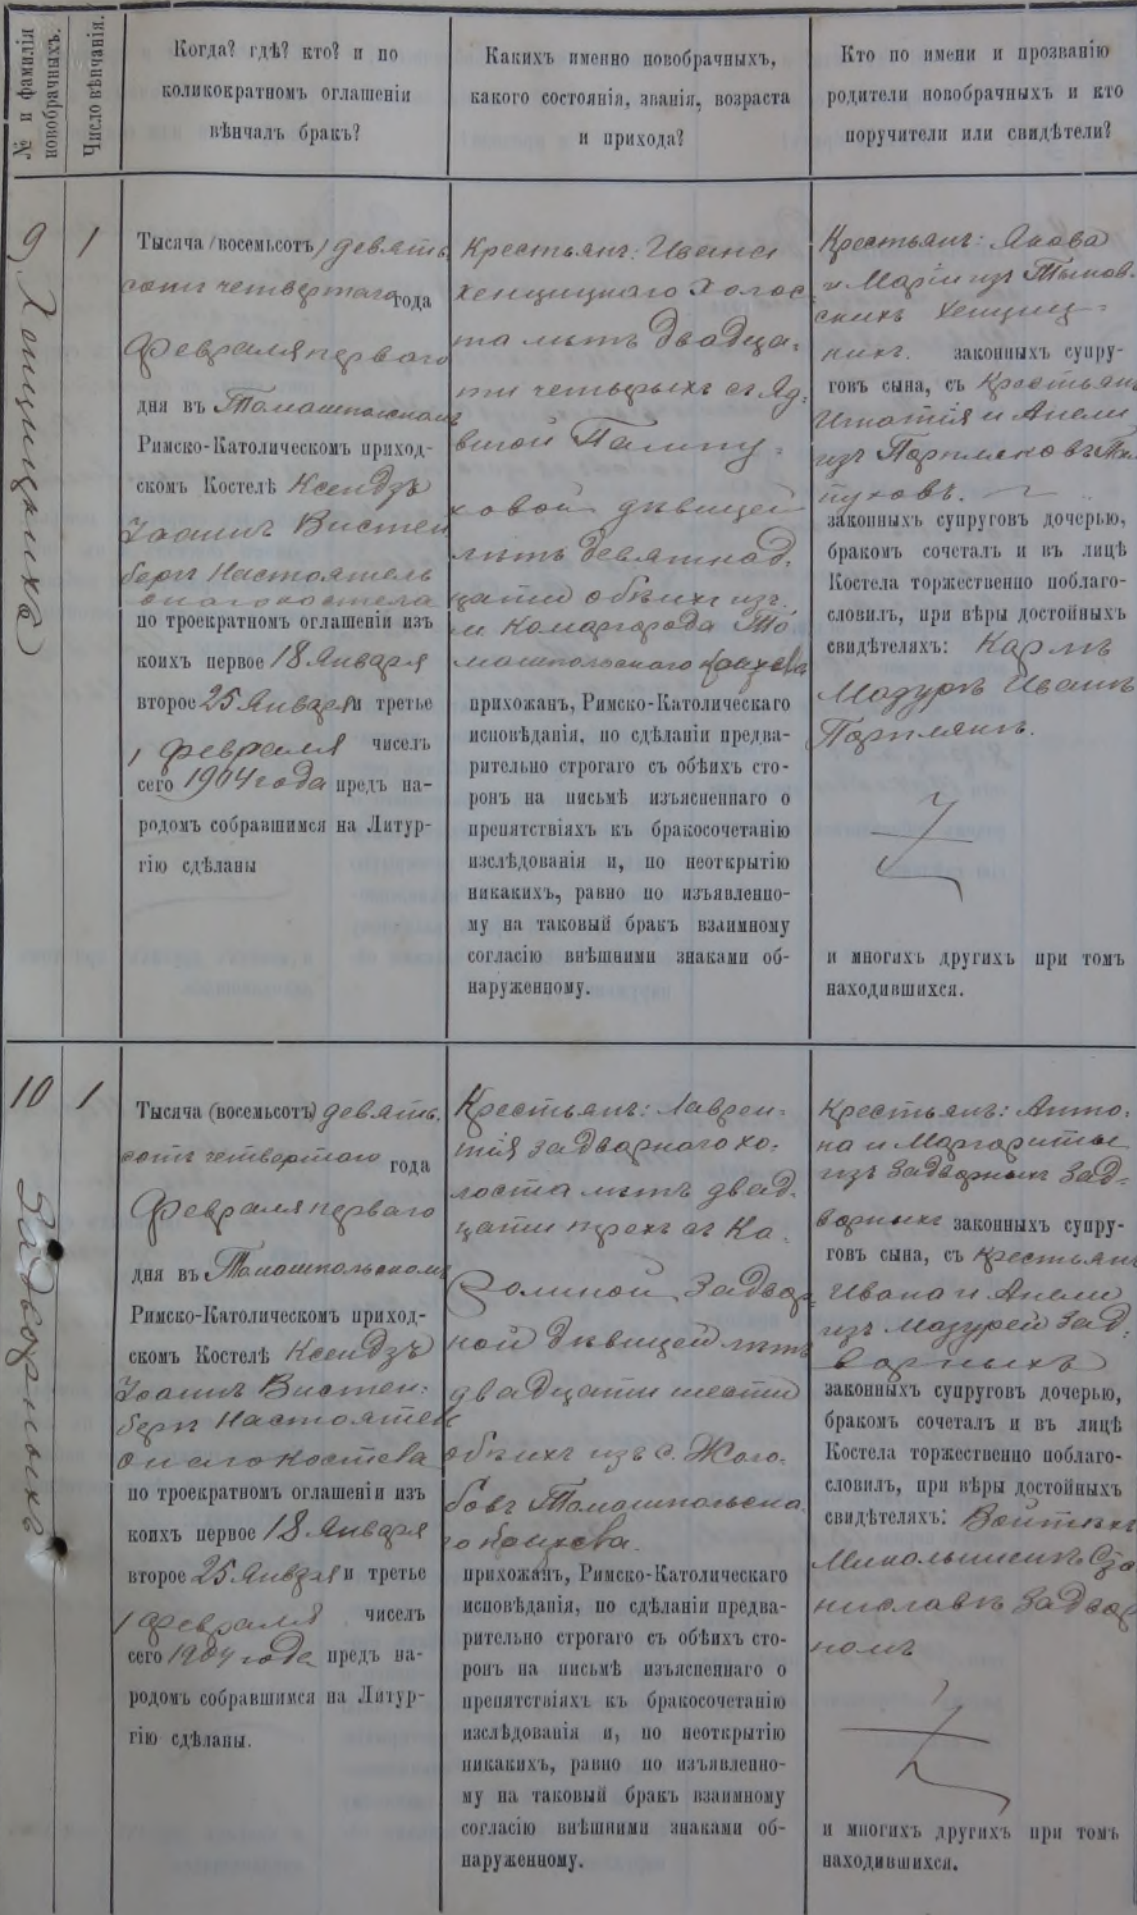 № и фамилія
новобрачныхъ.
Число вѣнчанія.
Когда? гдѣ? кто? и по
коликократномъ оглашеніи
вѣнчалъ бракъ?
Какихъ именно новобрачныхъ,
какого состоянія, званія, возраста
и прихода?
Кто по имени и прозванію
родители новобрачныхъ и кто
поручители или свидѣтели?
9
1
Тысяча (восемьсотъ) девять
сотъ четвертаго года
Февраля перваго
дня въ Томашпольскомъ
Римско-Католическомъ приход-
скомъ Костелѣ Ксендзъ
Іоаннъ Вистен
бергъ Настоятель
онаго костела
по троекратномъ оглашеніи изъ
коихъ первое 18 Января
второе 25 Января и третье
1 Февраля чиселъ
сего 1904 года предъ на-
родомъ собравшимся на Литур-
гію сдѣланы
Крестьянъ: Ивана
Хенцицкаго холос
та лѣтъ двадца-
ти четырехъ съ Яд-
вигой
ковой дѣвицей
лѣтъ девятнад-
цати обѣихъ изъ
м. Комаргорода То
машпольскаго
прихожанъ, Римско-Католическаго
исповѣданія, по сдѣланіи предва-
рительно строгаго съ обѣихъ сто-
ронъ на письмѣ изъясненнаго о
препятствіяхъ къ бракосочетанію
изслѣдованія и, по неоткрытію
никакихъ, равно по изъявленно-
му на таковый бракъ взаимному
согласію внѣшними знаками об-
наруженному.
Крестьянъ: Якова
и Маріи изъ Тымов-
скихъ Хенциц-
кихъ. законныхъ супру-
говъ сына, съ Крестьянъ
Игнатія и Анели
изъ
законныхъ супруговъ дочерью,
бракомъ сочеталъ и въ лицѣ
Костела торжественно поблаго-
словилъ, при вѣры достойныхъ
свидѣтеляхъ: Карлъ
Мазуръ Иванъ
и многихъ другихъ при томъ
находившихся.
10
Задворныхъ
1
Тысяча (восемьсотъ) девять-
сотъ четвертаго года
Февраля перваго
дня въ Томашпольскомъ
Римско-Католическомъ приход-
скомъ Костелѣ Ксендзъ
Іоаннъ Вистен-
бергъ Настоятель
онаго костела
по троекратномъ оглашеніи изъ
коихъ первое 18 Января
второе 25 Января и третье
1 Февраля чиселъ
сего 1904 года предъ на-
родомъ собравшимся на Литур-
гію сдѣланы.
Крестьянъ: Лаврен-
тія Задворнаго хо-
лоста лѣтъ двад-
цати трехъ съ Ка-
ролиной Задвор-
ной дѣвицей лѣтъ
двадцати шести
обѣихъ изъ с. Жоло-
бовъ Томашпольска
го
прихожанъ, Римско-Католическаго
исповѣданія, по сдѣланіи предва-
рительно строгаго съ обѣихъ сто-
ронъ на письмѣ изъясненнаго о
препятствіяхъ къ бракосочетанію
изслѣдованія и, по неоткрытію
никакихъ, равно по изъявленно-
му на таковый бракъ взаимному
согласію внѣшними знаками об-
наруженному.
Крестьянъ: Анто-
на и Маргариты
изъ Задворныхъ Зад-
ворныхъ законныхъ супру-
говъ сына, съ Крестьянъ
Ивана и Анели
изъ Мазурей Зад-
ворныхъ
законныхъ супруговъ дочерью,
бракомъ сочеталъ и въ лицѣ
Костела торжественно поблаго-
словилъ, при вѣры достойныхъ
свидѣтеляхъ: Войтѣхъ
Ста
ниславъ Задвор
номъ
и многихъ другихъ при томъ
находившихся.